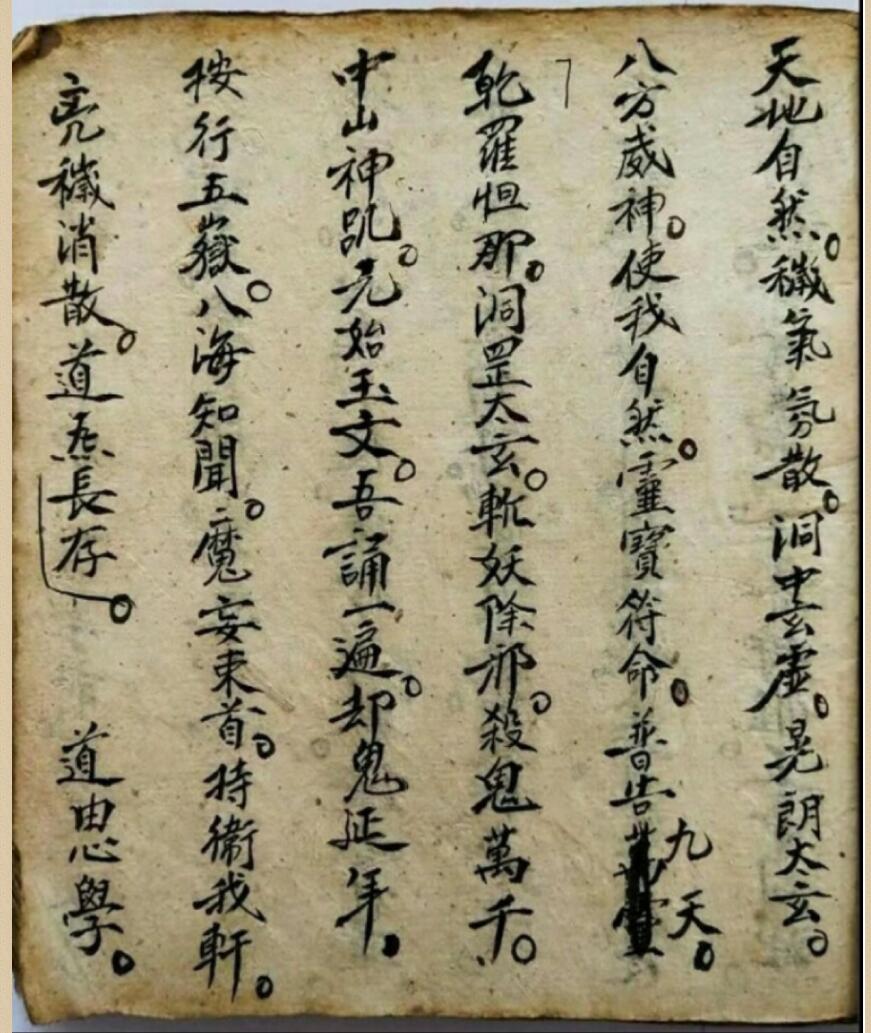 天地自然。穢氣氛散。洞中玄虛。晃朗太玄。
八方威神。使我自然。靈寶符命。普告九天。
乾羅怛那。洞罡太玄。斬妖除邪。殺鬼萬千。
中山神咒。元始玉文。吾誦一遍。却鬼延年。
按行五嶽。八海知聞。魔妄束首。持衛我軒。
亮穢消散。道炁長存。道由心學。